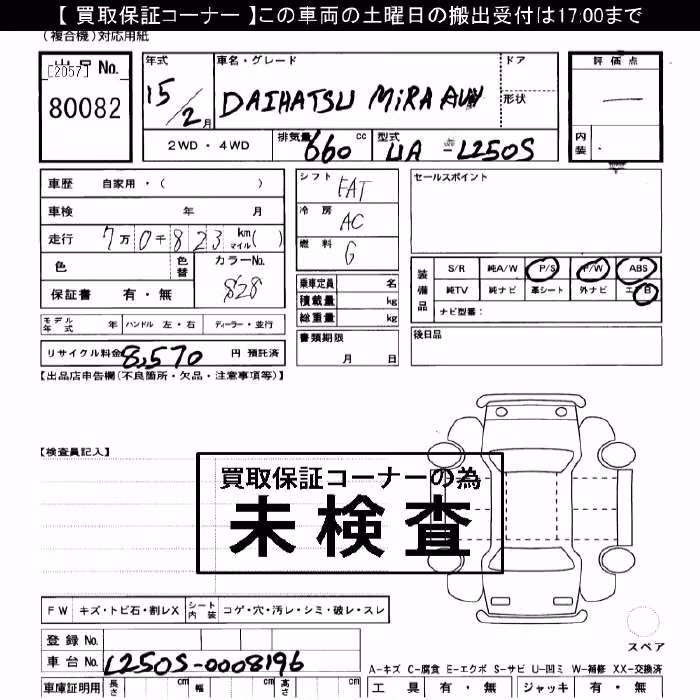 【 買取保証コーナー 】この車両の土曜日の搬出受付は17:00まで
(複合機)対応用紙
出品 No.
[2057]
80082
年式
15/2月
車名・グレード
DAIHATSU MIRA
ドア
形状
評価点
内装
2WD ・ 4WD
排気量 660 cc
型式 UA - L250S
車歴 自家用 ・ ( )
車検 年 月
走行 7万0千823 km マイル( )
色
色替
カラーNo. S28
保証書 有 ・ 無
シフト FAT
冷房 AC
燃料 G
乗車定員 名
積載量 kg
総重量 kg
書類期限
月 日
セールスポイント
装備品
S/R 純A/W P/S P/W ABS
純TV 純ナビ 革シート 外ナビ エアB
ナビ型番：
後日品
モデル年式 年 ハンドル 左・右 ディーラー・並行
リサイクル料金 8,570 円 預託済
【出品店申告欄(不良箇所・欠品・注意事項等)】
【検査員記入】
買取保証コーナーの為
未検査
FW キズ・トビ石・割レX シート内装 コゲ・穴・汚レ・シミ・破レ・スレ
登録 No.
車台 No. L250S-0008196
車庫証明用 長さ cm 幅 cm 高さ cm
スペア
A-キズ C-腐食 E-エクボ S-サビ U-凹ミ W-補修 XX-交換済
工具 有 ・ 無 ジャッキ 有 ・ 無